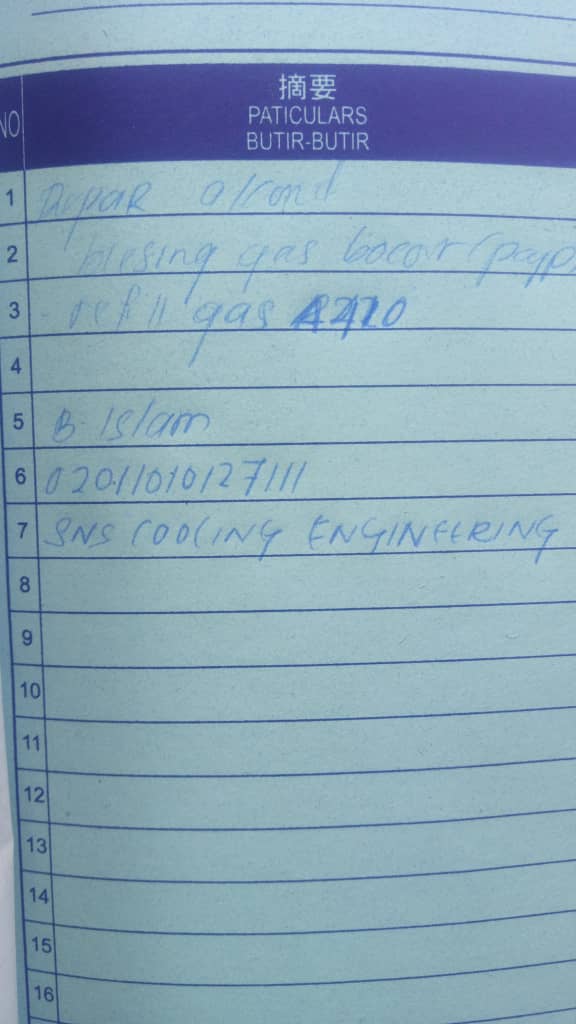 NO
摘要
PATICULARS
BUTIR-BUTIR
1 Repar
2 gas bocor
3 - refill gas R410
4
5 B. Islam
6 02011010127111
7 SNS COOLING ENGINEERING
8
9
10
11
12
13
14
15
16